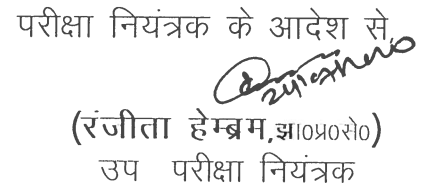 परीक्षा नियंत्रक के आदेश से,
(रंजीता हेम्ब्रम,झा०प्र०से०)
उप परीक्षा नियंत्रक